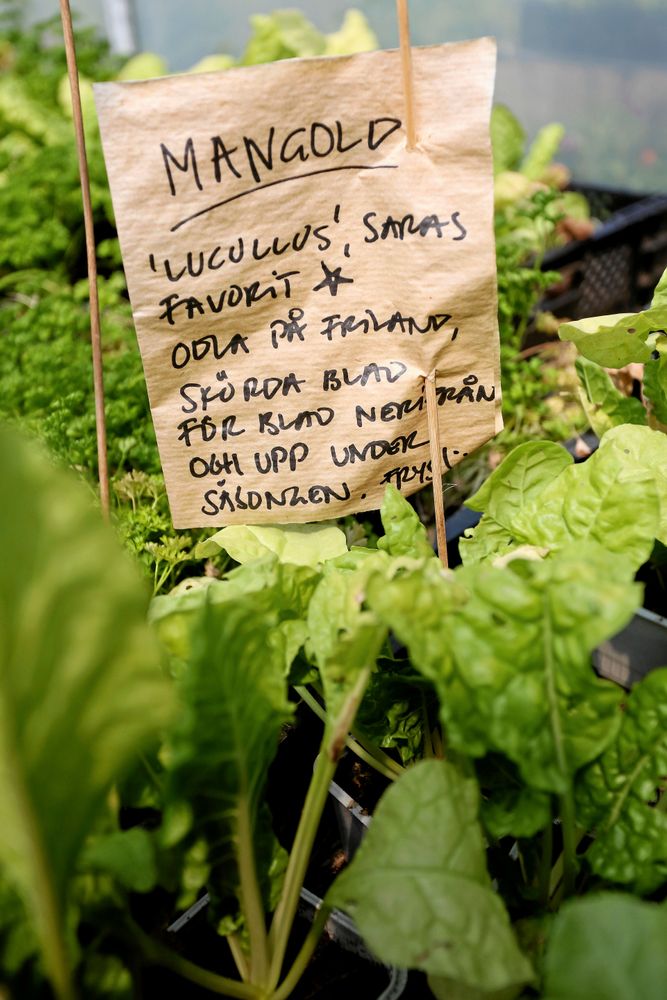 MANGOLD
'LUCULLUS', SARAS
FAVORIT
ODLA PÅ FRILAND,
SKÖRDA BLAD
FÖR BLAD NERIFRÅN
OCH UPP UNDER
SÄSONZEN.